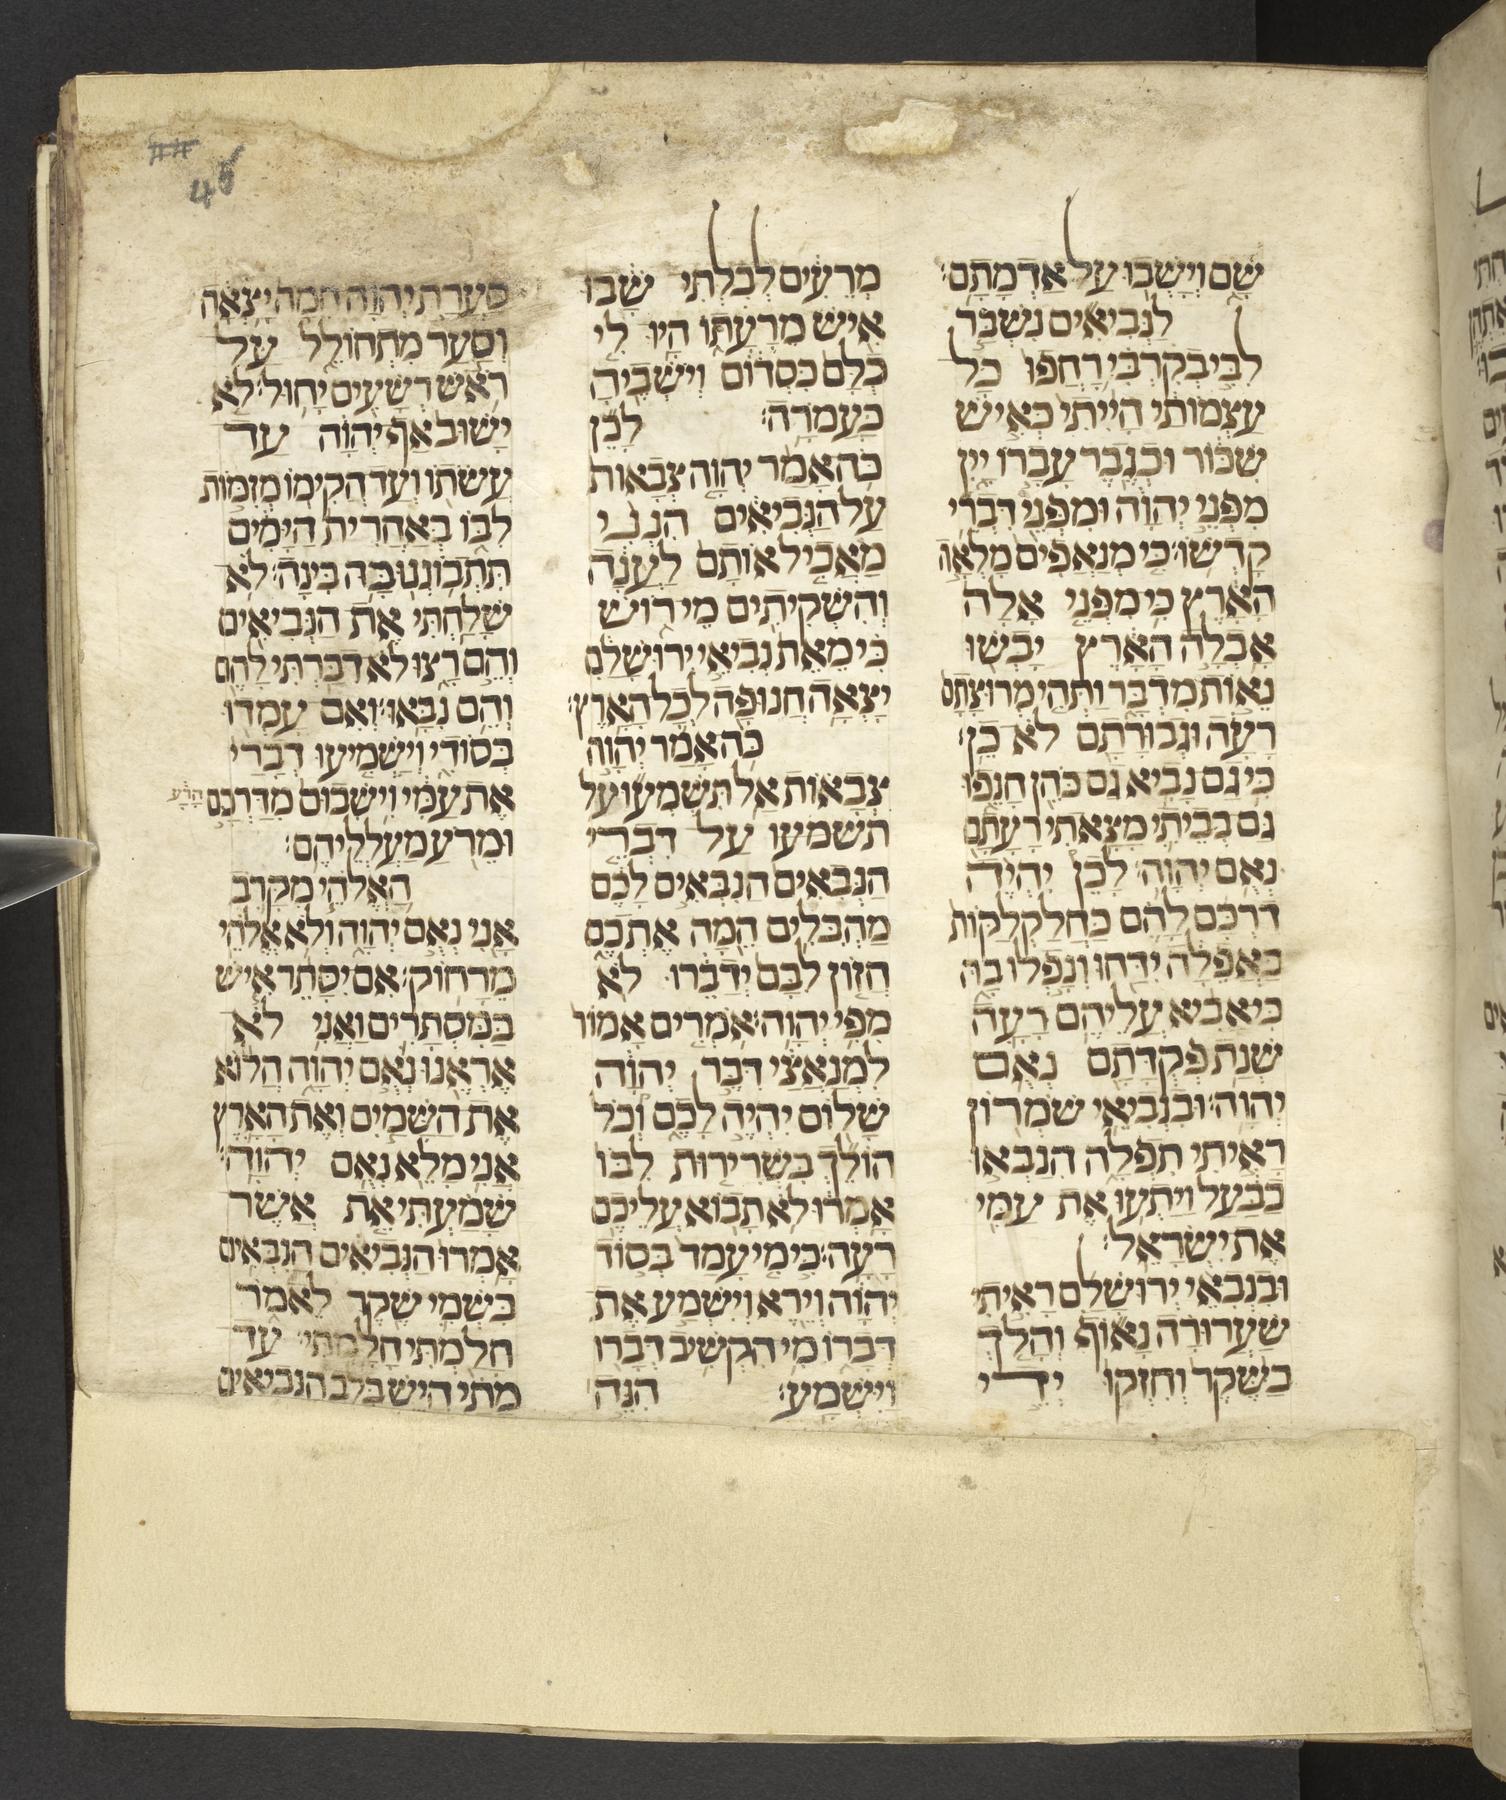 שם וישבו על אדמתם׃
לנביאים נשבר
לבי בקרבי רחפו כל
עצמותי הייתי כאיש
שכור וכגבר עברו יין
מפני יהוה ומפני דברי
קדשו׃ כי מנאפים מלאה
הארץ כי מפני אלה
אבלה הארץ יבשו
נאות מדבר ותהי מרוצתם
רעה וגבורתם לא כן׃
כי גם נביא גם כהן חנפו
גם בביתי מצאתי רעתם
נאם יהוה׃ לכן יהיה
דרכם להם כחלקלקות
באפלה ידחו ונפלו בה
כי אביא עליהם רעה
שנת פקדתם נאם
יהוה׃ ובנביאי שמרון
ראיתי תפלה הנבאו
בבעל ויתעו את עמי
את ישראל׃
ובנבאי ירושלם ראיתי
שערורה נאוף והלך
בשקר וחזקו ידי
מרעים לבלתי שבו
איש מרעתו היו לי
כלם כסדום וישביה
כעמרה׃ לכן
כה אמר יהוה צבאות
על הנביאים הנני
מאכיל אותם לענה
והשקיתים מי רוש
כי מאת נביאי ירושלם
יצאה חנופה לכל הארץ׃
כה אמר יהוה
צבאות אל תשמעו על
תשמעו על דברי
הנבאים הנבאים לכם
מהבלים המה אתכם
חזון לבם ידברו לא
מפי יהוה׃ אמרים אמור
למנאצי דבר יהוה
שלום יהיה לכם וכל
הולך בשרירות לבו
אמרו לא תבוא עליכם
רעה׃ כי מי עמד בסוד
יהוה וירא וישמע את
דברו מי הקשיב דברו
וישמע׃ הנה
סערת יהוה חמה יצאה
וסער מתחולל על
ראש רשעים יחול׃ לא
ישוב אף יהוה עד
עשתו ועד הקימו מזמות
לבו באחרית הימים
תתבוננו בה בינה׃ לא
שלחתי את הנביאים
והם רצו לא דברתי להם
והם נבאו׃ ואם עמדו
בסודי וישמיעו דברי
את עמי וישבום מדרכם הרע
ומרע מעלליהם׃
האלהי מקרב
אני נאם יהוה ולא אלהי
מרחוק׃ אם יסתר איש
במסתרים ואני לא
אראנו נאם יהוה הלוא
את השמים ואת הארץ
אני מלא נאם יהוה׃
שמעתי את אשר
אמרו הנביאים הנבאים
בשמי שקר לאמר
חלמתי חלמתי׃ עד
מתי היש בלב הנביאים